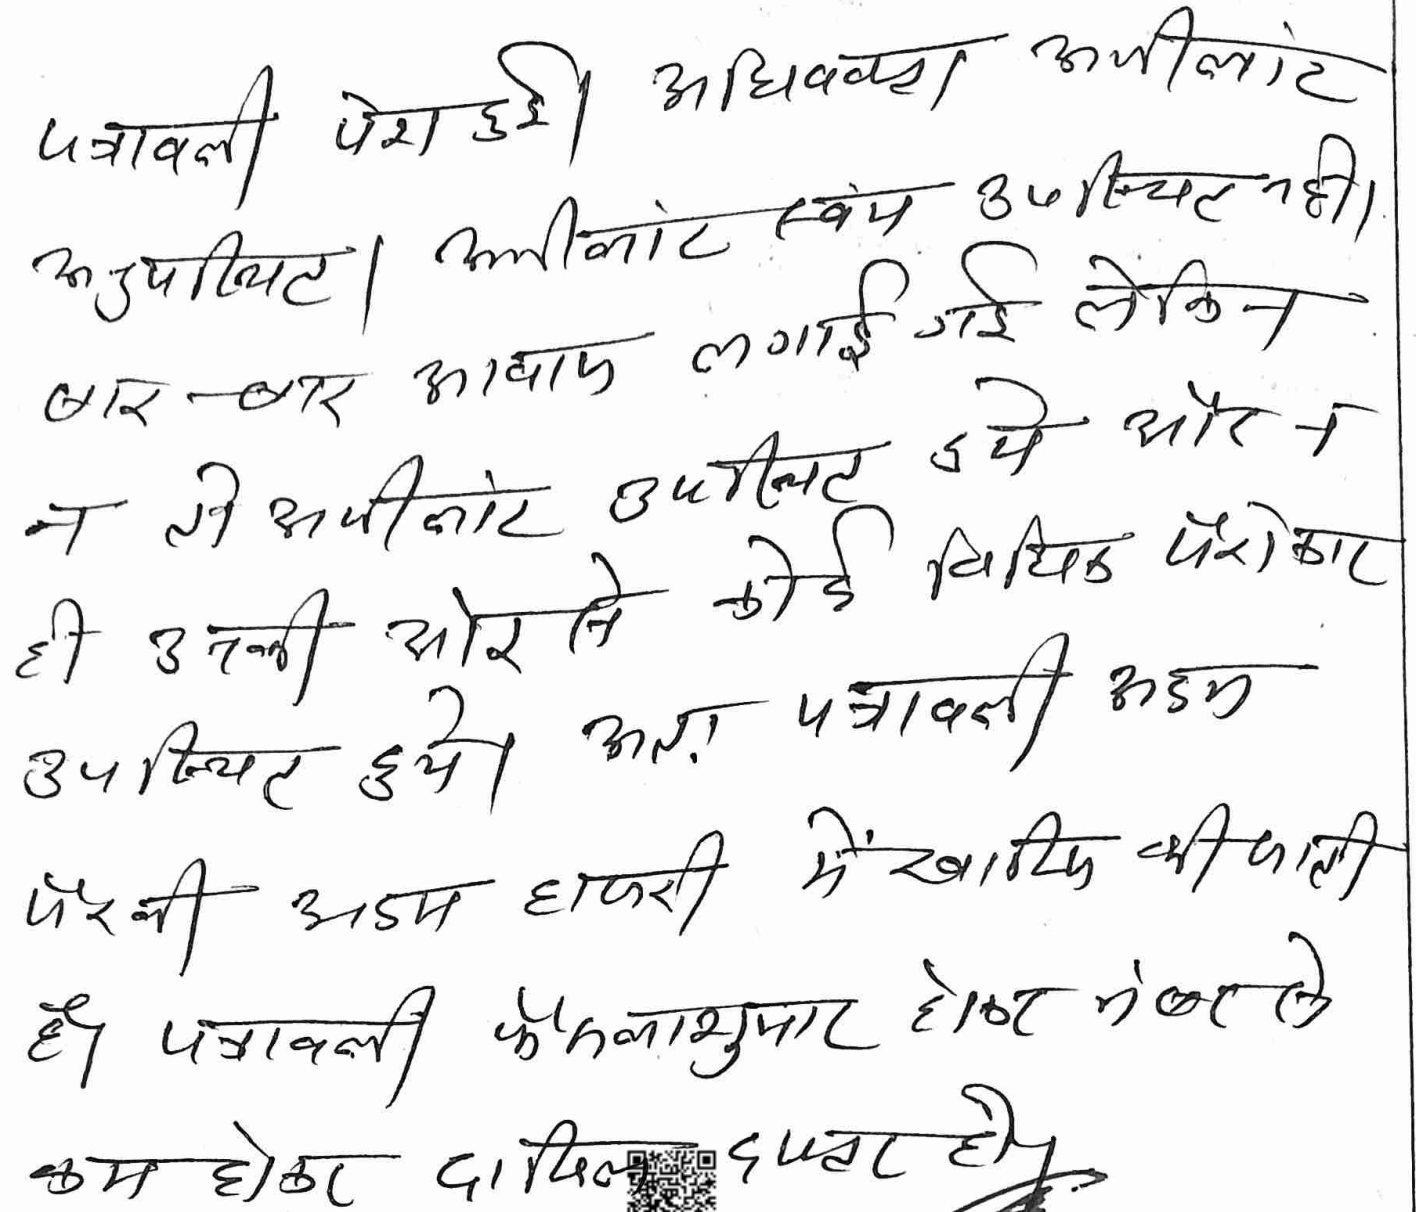 पत्रावली पेश हुई। अधिवक्ता अपीलांट
अनुपस्थित। अपीलांट स्वंय उपस्थित नही।
बार-बार आवाज लगाई गई लेकिन
न तो अपीलांट उपस्थित हुये और न
ही उनकी ओर से कोई विधिक पैरोकार
उपस्थित हुये। अतः पत्रावली अदम
पैरवी अदम हाजरी में खारिज की जाती
है। पत्रावली फैसलाशुमार होकर नंबर से
कम होकर दाखिल दफ्तर हो।